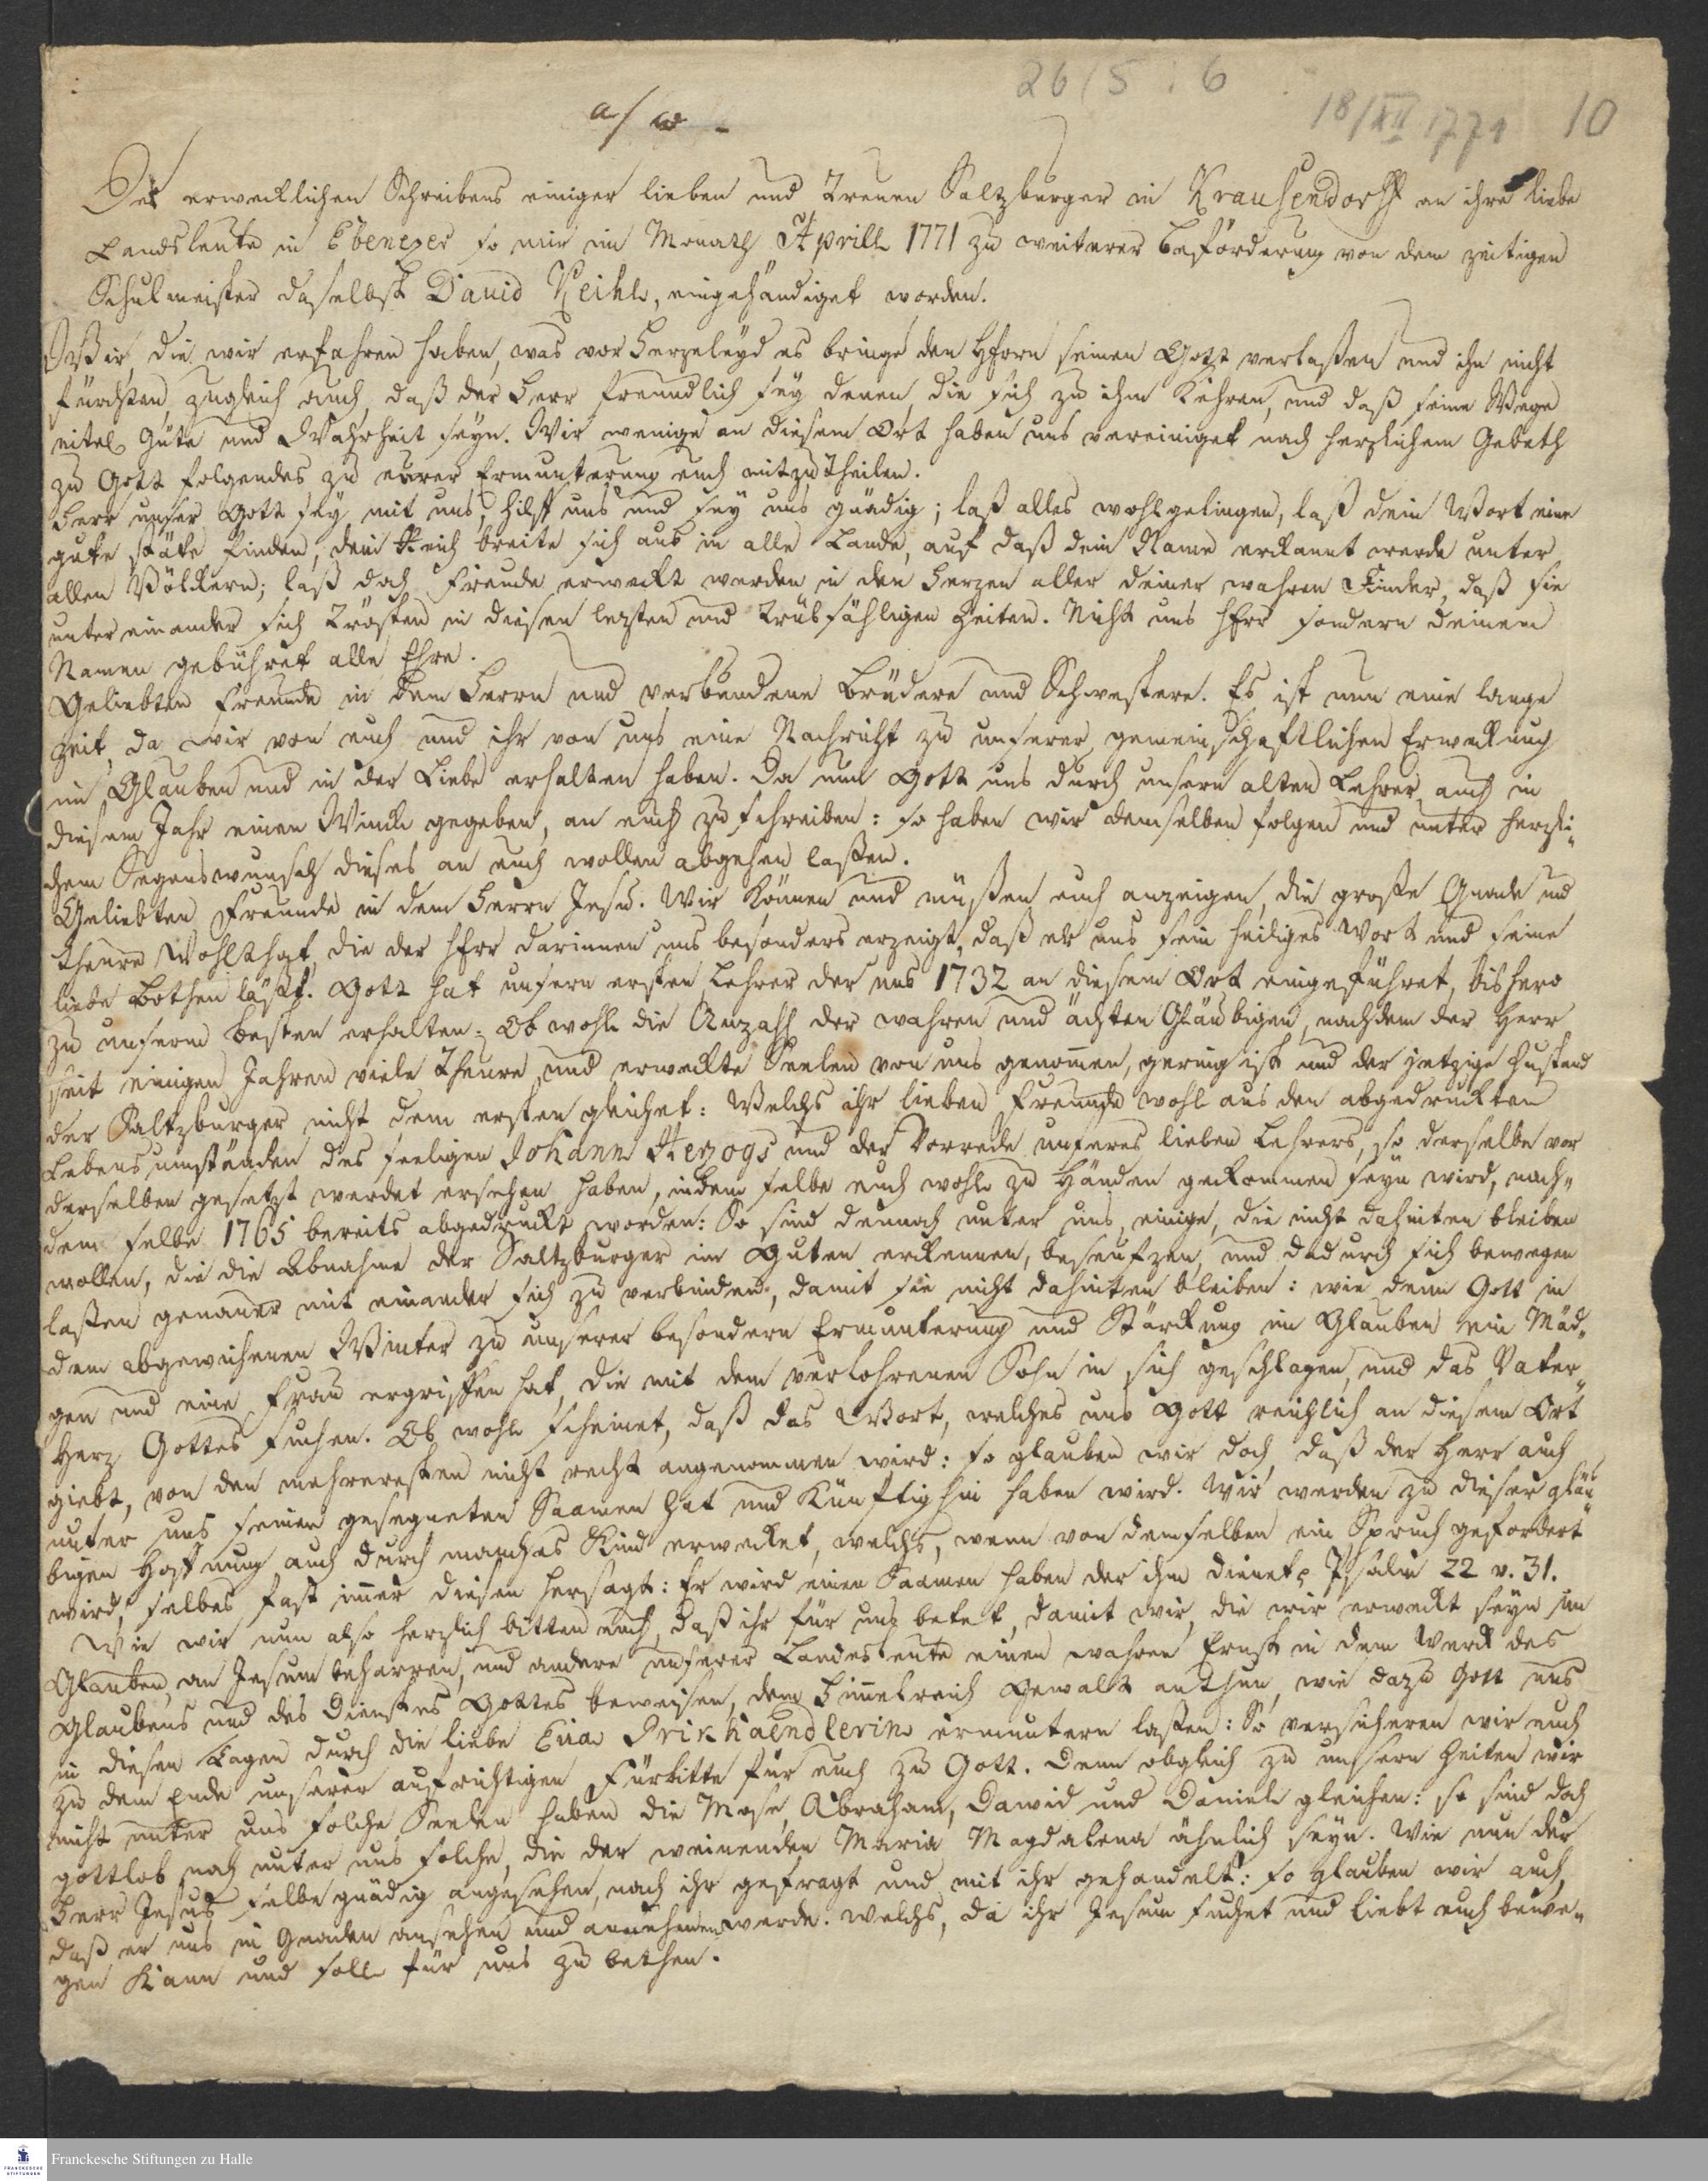 26/5 : 6
18/XII 1771 10
a/ w -
Des erwecklichen Schreibens einiger lieben und treuen Saltzburger in Krausendorff an ihre liebe
Landsleute in Ebenezer so mir im Monath Aprill 1771 zu weiterer Beförderung von dem zeitigen
Schulmeister daselbst David Keihl, eingehändiget worden.
die wir erfahren haben, was vor Herzeleyd es bringe den HErrn seinen Gott verlaßen und ihn nicht
fürchten, zugleich auch, daß der Herr freundlich sey denen, die sich zu ihm kehren, und daß seine Wege
eitel Güte und Wahrheit seyn. Wir wenige an diesem Ort haben uns vereiniget nach herzlichem Gebeth
zu Gott folgendes zu eurer Ermunterung euch mitzutheilen.
Herr unser Gott sey mit uns, hilff uns und sey uns gnädig; laß alles wohlgelingen, laß dein Wort eine
gute stäte finden, dein Reich breite sich aus in alle Lande, auf daß dein Name erkannt werde unter
allen Völkern; laß doch Freude erweckt werden in den Herzen aller deiner wahren Kinder, daß sie
unter einander sich trösten in diesen lezten und trübsähligen Zeiten. Nicht uns HErr sondern deinem
Namen gebühret alle Ehre.
Geliebten Freunde in dem Herrn und verbundene Brüdere und Schwestern. Es ist nun eine lange
Zeit, da wir von euch und ihr von uns eine Nachricht zu unserer gemeinschaftlichen Erweckung
im Glauben und in der Liebe erhalten haben. Da nun Gott uns durch unsern alten Lehrer auch in
diesem Jahr einen Winck gegeben, an euch zu schreiben: so haben wir demselben folgen und unter herzli-
chem Segenswunsch dieses an euch wollen abgehen lassen.
Geliebten Freunde in dem Herrn Jesu. Wir können und müßen euch anzeigen, die große Gnade und
theure Wohlthat, die der HErr darinnen uns besonders erzeigt, daß er uns sein heiliges Wort und seine
liebe Bothen läßt. Gott hat unsern ersten Lehrer der uns 1732 an diesem Ort eingeführet, bishero
zu unserm besten erhalten: Obwohl die Anzahl der wahren und ächten Gläubigen, nachdem der Herr
seit einigen Jahren viele theure und erweckte Seelen von uns genommen, gering ist und der jetzige Zustand
der Saltzburger nicht dem ersten gleichet: Welchs ihr lieben Freunde wohl aus den abgedruckten
Lebensumständen des seeligen Johann Herzogs und der Vorrede unseres lieben Lehrers, so derselbe vor
derselben gesetzt werdet ersehen haben, indem selbe euch wohl zu Händen gekommen seyn wird, nach-
dem selbe 1765 bereits abgedruckt worden: So sind dennoch unter uns, einige, die nicht dahinten bleiben
wollen, die die Abnahme der Saltzburger im Guten erkennen, beseufzen, und dadurch sich bewegen
laßen genauer mit einander sich zu verbinden, damit sie nicht dahinten bleiben: wie denn Gott in
dem abgewichenen Winter zu unserer besondern Ermunterung und Stärckung im Glauben ein Mäd-
gen und eine Frau ergriffen hat, die mit dem verlohrenen Sohn in sich geschlagen, und das Vater-
Herz Gottes suchen. Ob wohl scheinet, daß das Wort, welches uns Gott reichlich an diesem Ort
giebt, von den mehreresten nicht recht angenommen wird: so glauben wir doch, daß der Herr auch
unter uns seinen gesegneten Saamen hat und künftighin haben wird. Wir werden zu dieser gläu-
bigen Hoffnung auch durch manches Kind erwecket, welchs, wenn von demselben ein Spruch gefordert
wird, selbes fast immer diesen hersagt: Er wird einen Saamen haben der ihm dienet, Psalm 22 v. 31.
Wie wir nun also herzlich bitten euch, daß ihr für uns betet, damit wir, die wir erweckt seyn im
Glauben, an Jesum beharren, und andere unserer Landesleute einen wahren Ernst in dem Werck des
Glaubens und des Dienstes Gottes beweisen, dem Himmelreich Gewalt anthun, wie dazu Gott uns
in diesen Tagen durch die liebe Eva Prikhaendlerin ermuntern lassen: So versichern wir euch
zu dem Ende unserer aufrichtigen Fürbitte für euch zu Gott. Denn obgleich zu unsern Zeiten wir
nicht unter uns solche Seelen haben die Mose, Abraham, David und Daniel gleichen: so sind doch
gottlob noch unter uns solche, die der weinenden Maria Magdalena ähnlich seyn. Wie nun der
Herr Jesus selbe gnädig angesehen, nach ihr gefragt und mit ihr gehandelt: so glauben wir auch,
daß er uns in Gnaden ansehen und annehmen werde. Welchs, da ihr Jesum suchet und liebt euch bewe-
gen kann und soll für uns zu bethen.
FRANCKESCHE STIFTUNGEN
Franckesche Stiftungen zu Halle